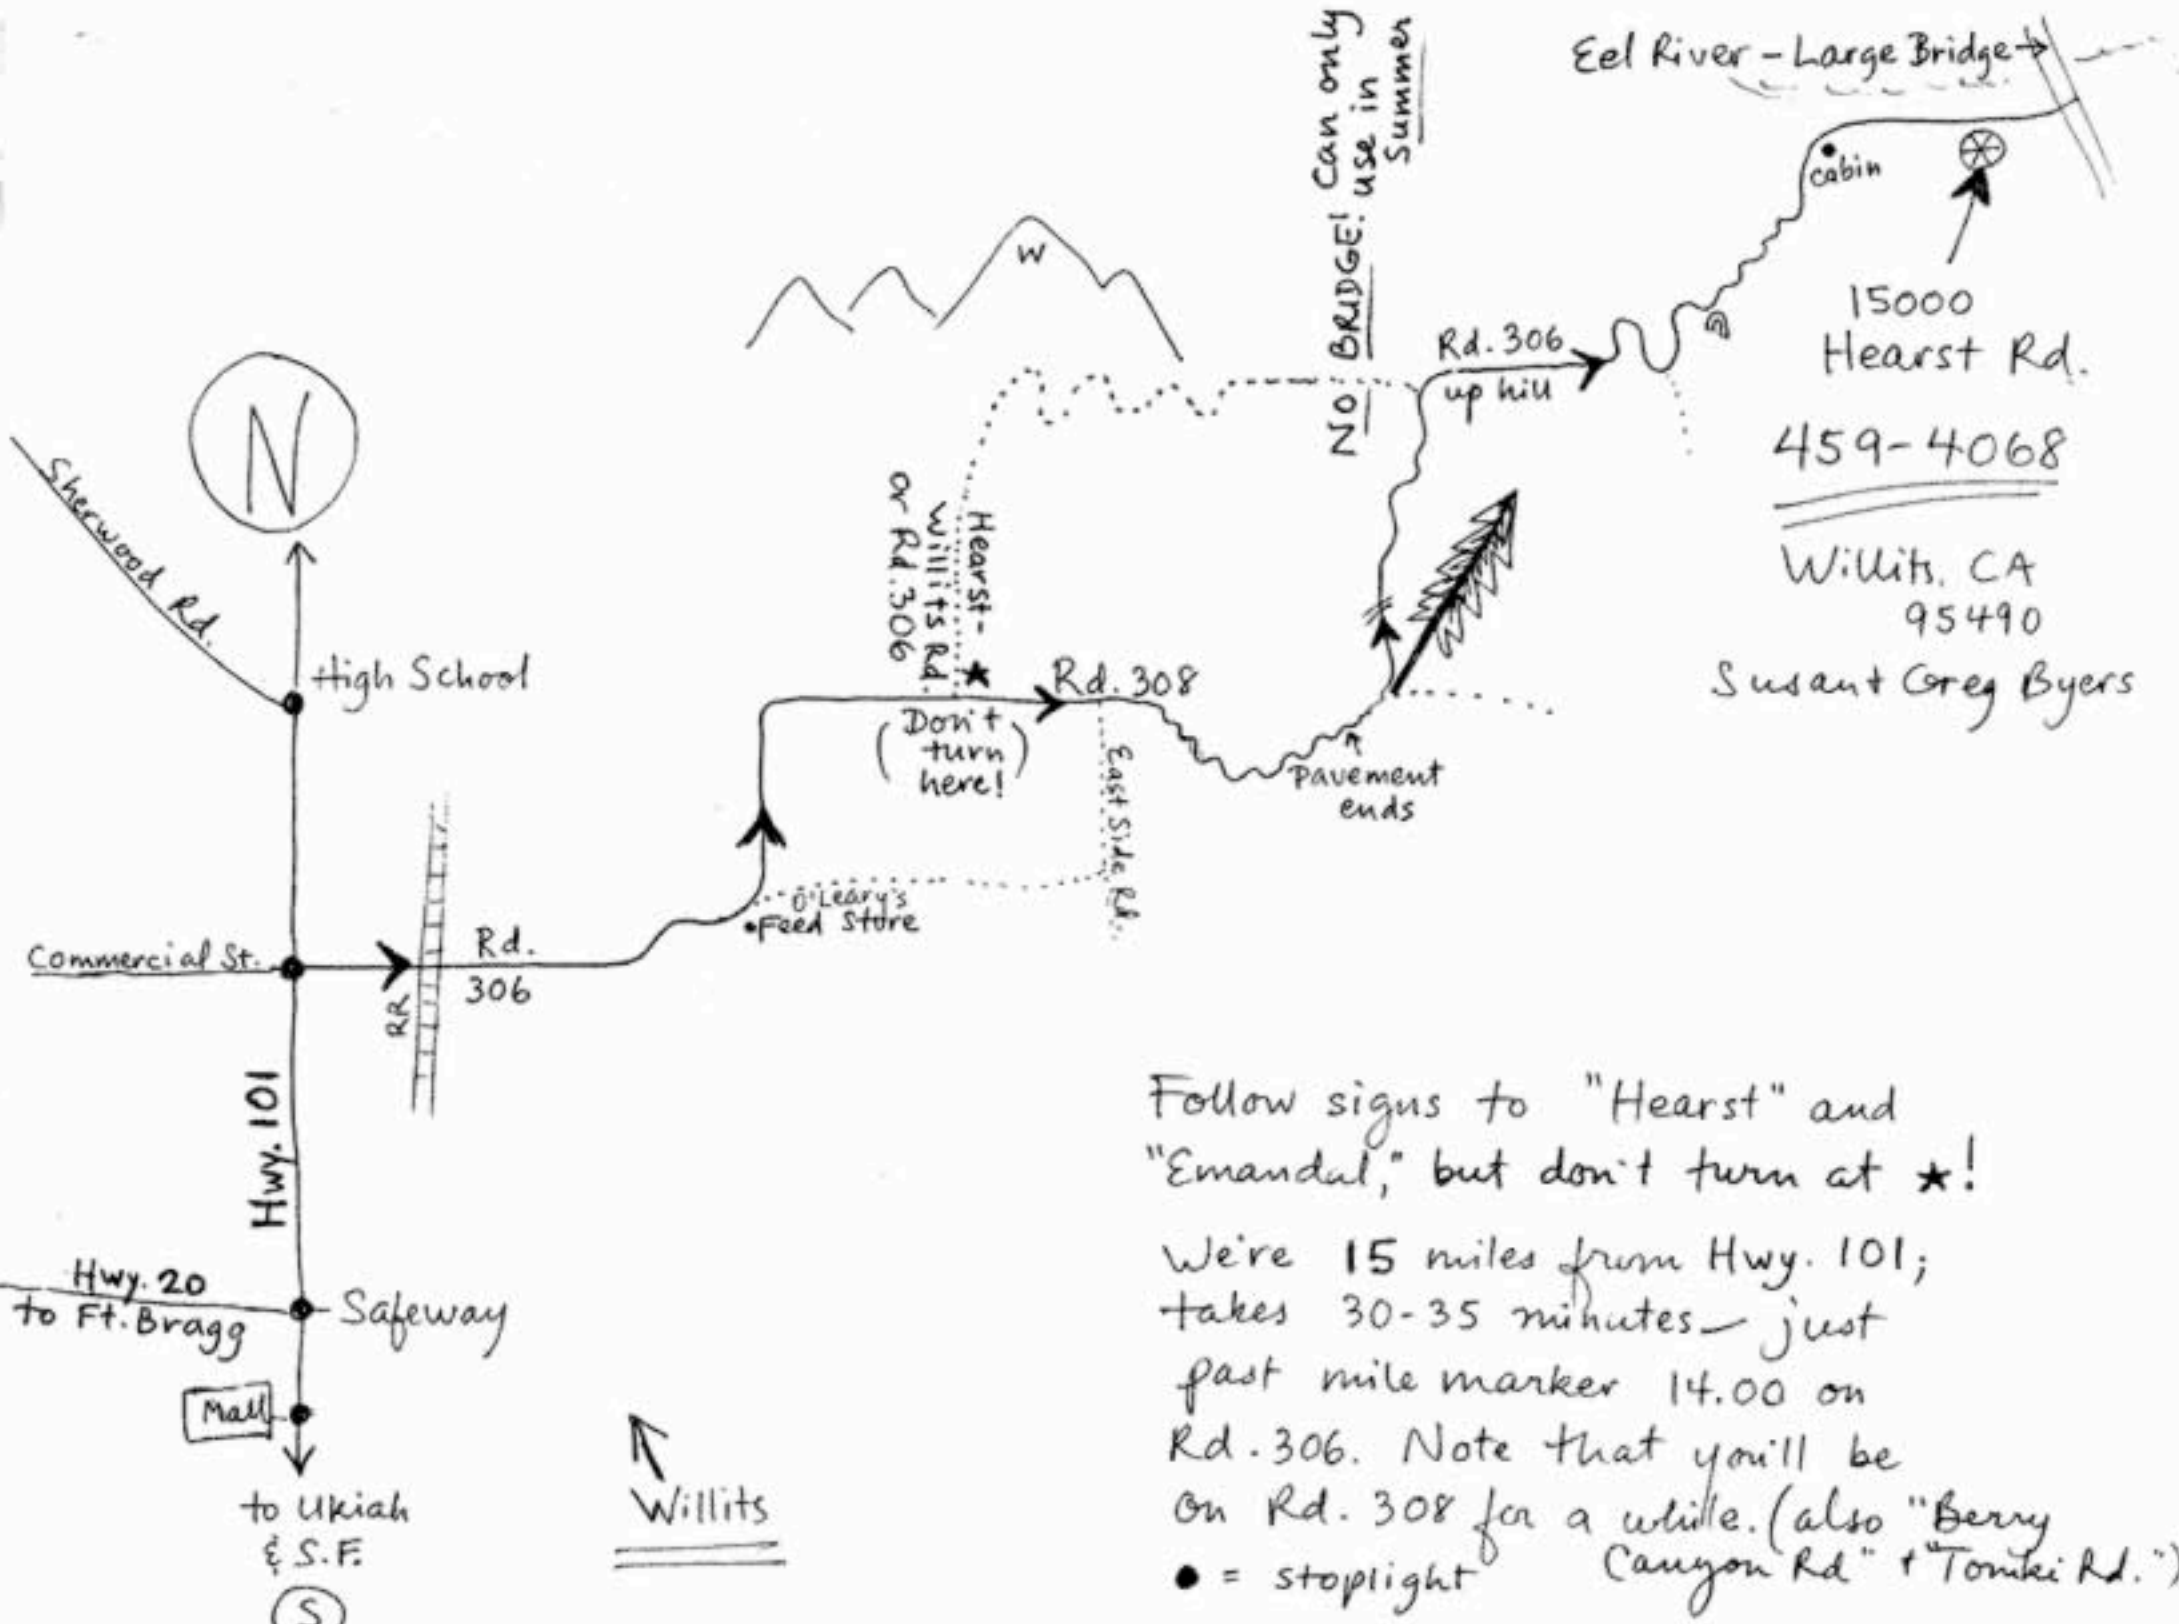 Eel River - Large Bridge →
NO BRIDGE! Can only
use in
Summer
cabin
W
Rd. 306
up hill
15000
Hearst Rd.
459-4068
Willits, CA
95490
Susan + Greg Byers
N
Sherwood Rd.
High School
Hearst-
Willits Rd.
or Rd. 306
★
Rd. 308
(Don't
turn
here!)
East Side Rd.
Pavement
ends
O'Leary's
Feed Store
Commercial St.
RR
Rd.
306
Hwy. 101
Hwy. 20
to Ft. Bragg
Safeway
Mall
to Ukiah
& S.F.
S
Willits
Follow signs to "Hearst" and
"Emandal," but don't turn at ★!
We're 15 miles from Hwy. 101;
takes 30-35 minutes — just
past mile marker 14.00 on
Rd. 306. Note that you'll be
on Rd. 308 for a while. (also "Berry
Canyon Rd" + "Tomki Rd.")
● = stoplight